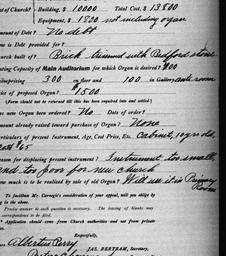 of Church? Building, $ 10000 Total Cost, $ 13800
Equipment, $ 1500 not including organ
Amount of Debt? No debt
is Debt provided for?
Church built of? Brick trimmed with Bedford stone
Seating Capacity of Main Auditorium for which Organ is desired? 400
Comprising 300 on floor and 100 in Gallery,
Price of proposed Organ? $1500
(Form should not to returned till this has been inquired into and settled.)
new Organ been ordered? No Date of order?
amount already raised toward purchase of Organ? None
Particulars of present Instrument, Age, Cost Price, Etc. Cabinet, 10 yrs old,
cost $65
reason for displacing present instrument? Instrument too small,
and too poor for new church
much is to be realized by sale of old Organ? Will use it in Primary
Room
To facilitate Mr. Carnegie's consideration of your appeal, will you oblige by
in the above.
Precise answer to each question is necessary. The leaving of blanks may
correspondence to be filed.
Application should come from Church authorities and not from private
Albertus Perry
JAS. BERTRAM, Secretary,